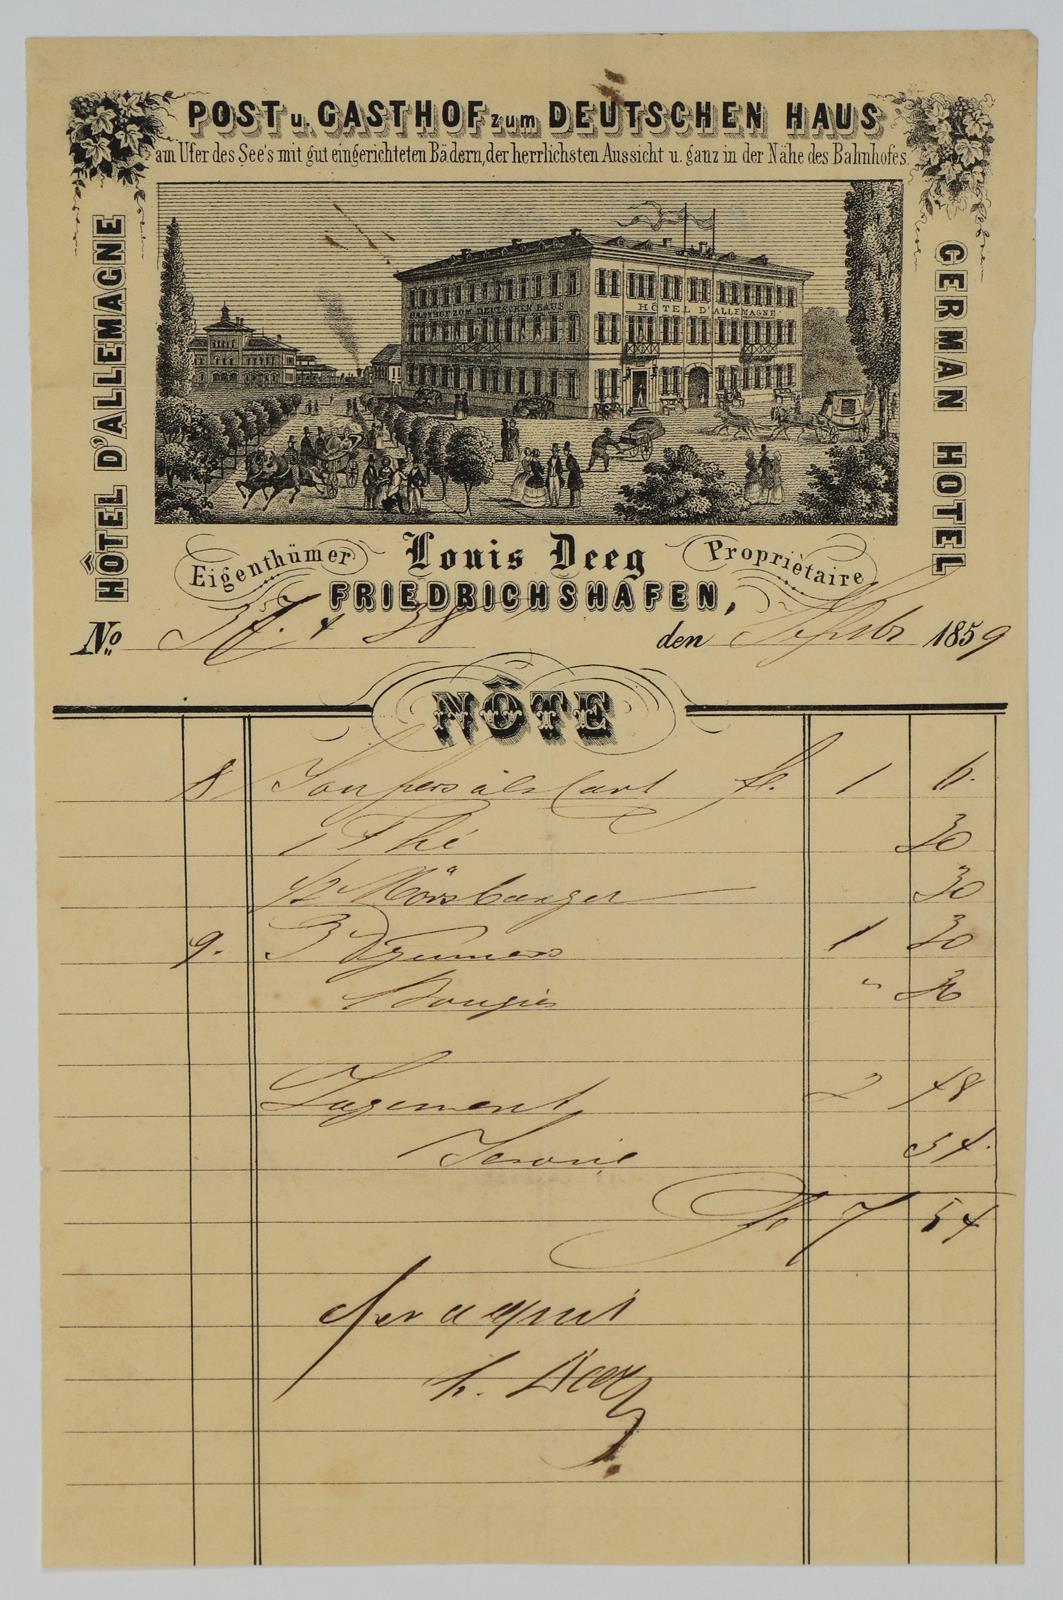 POST u. GASTHOF zum DEUTSCHEN HAUS
am Ufer des See's mit gut eingerichteten Bädern, der herrlichsten Aussicht u. ganz in der Nähe des Bahnhofes.
HÔTEL D'ALLEMAGNE
GASTHOF ZUM DEUTSCHEN HAUS
HÔTEL D'ALLEMAGNE
GERMAN HOTEL
Eigenthümer Louis Deeg Propriètaire
FRIEDRICHSHAFEN,
No. 37. & 38 den Septbr 1859
NÔTE
8 Soupers à la Cart fl. 1 6.
1 Thé 30
1/2 Mörsburger 30
9. 3 Dejuners 1 30
Bougies " 36
Logement 2 48
Servic 54.
fl 7 54
Pour acquit
L. Deeg